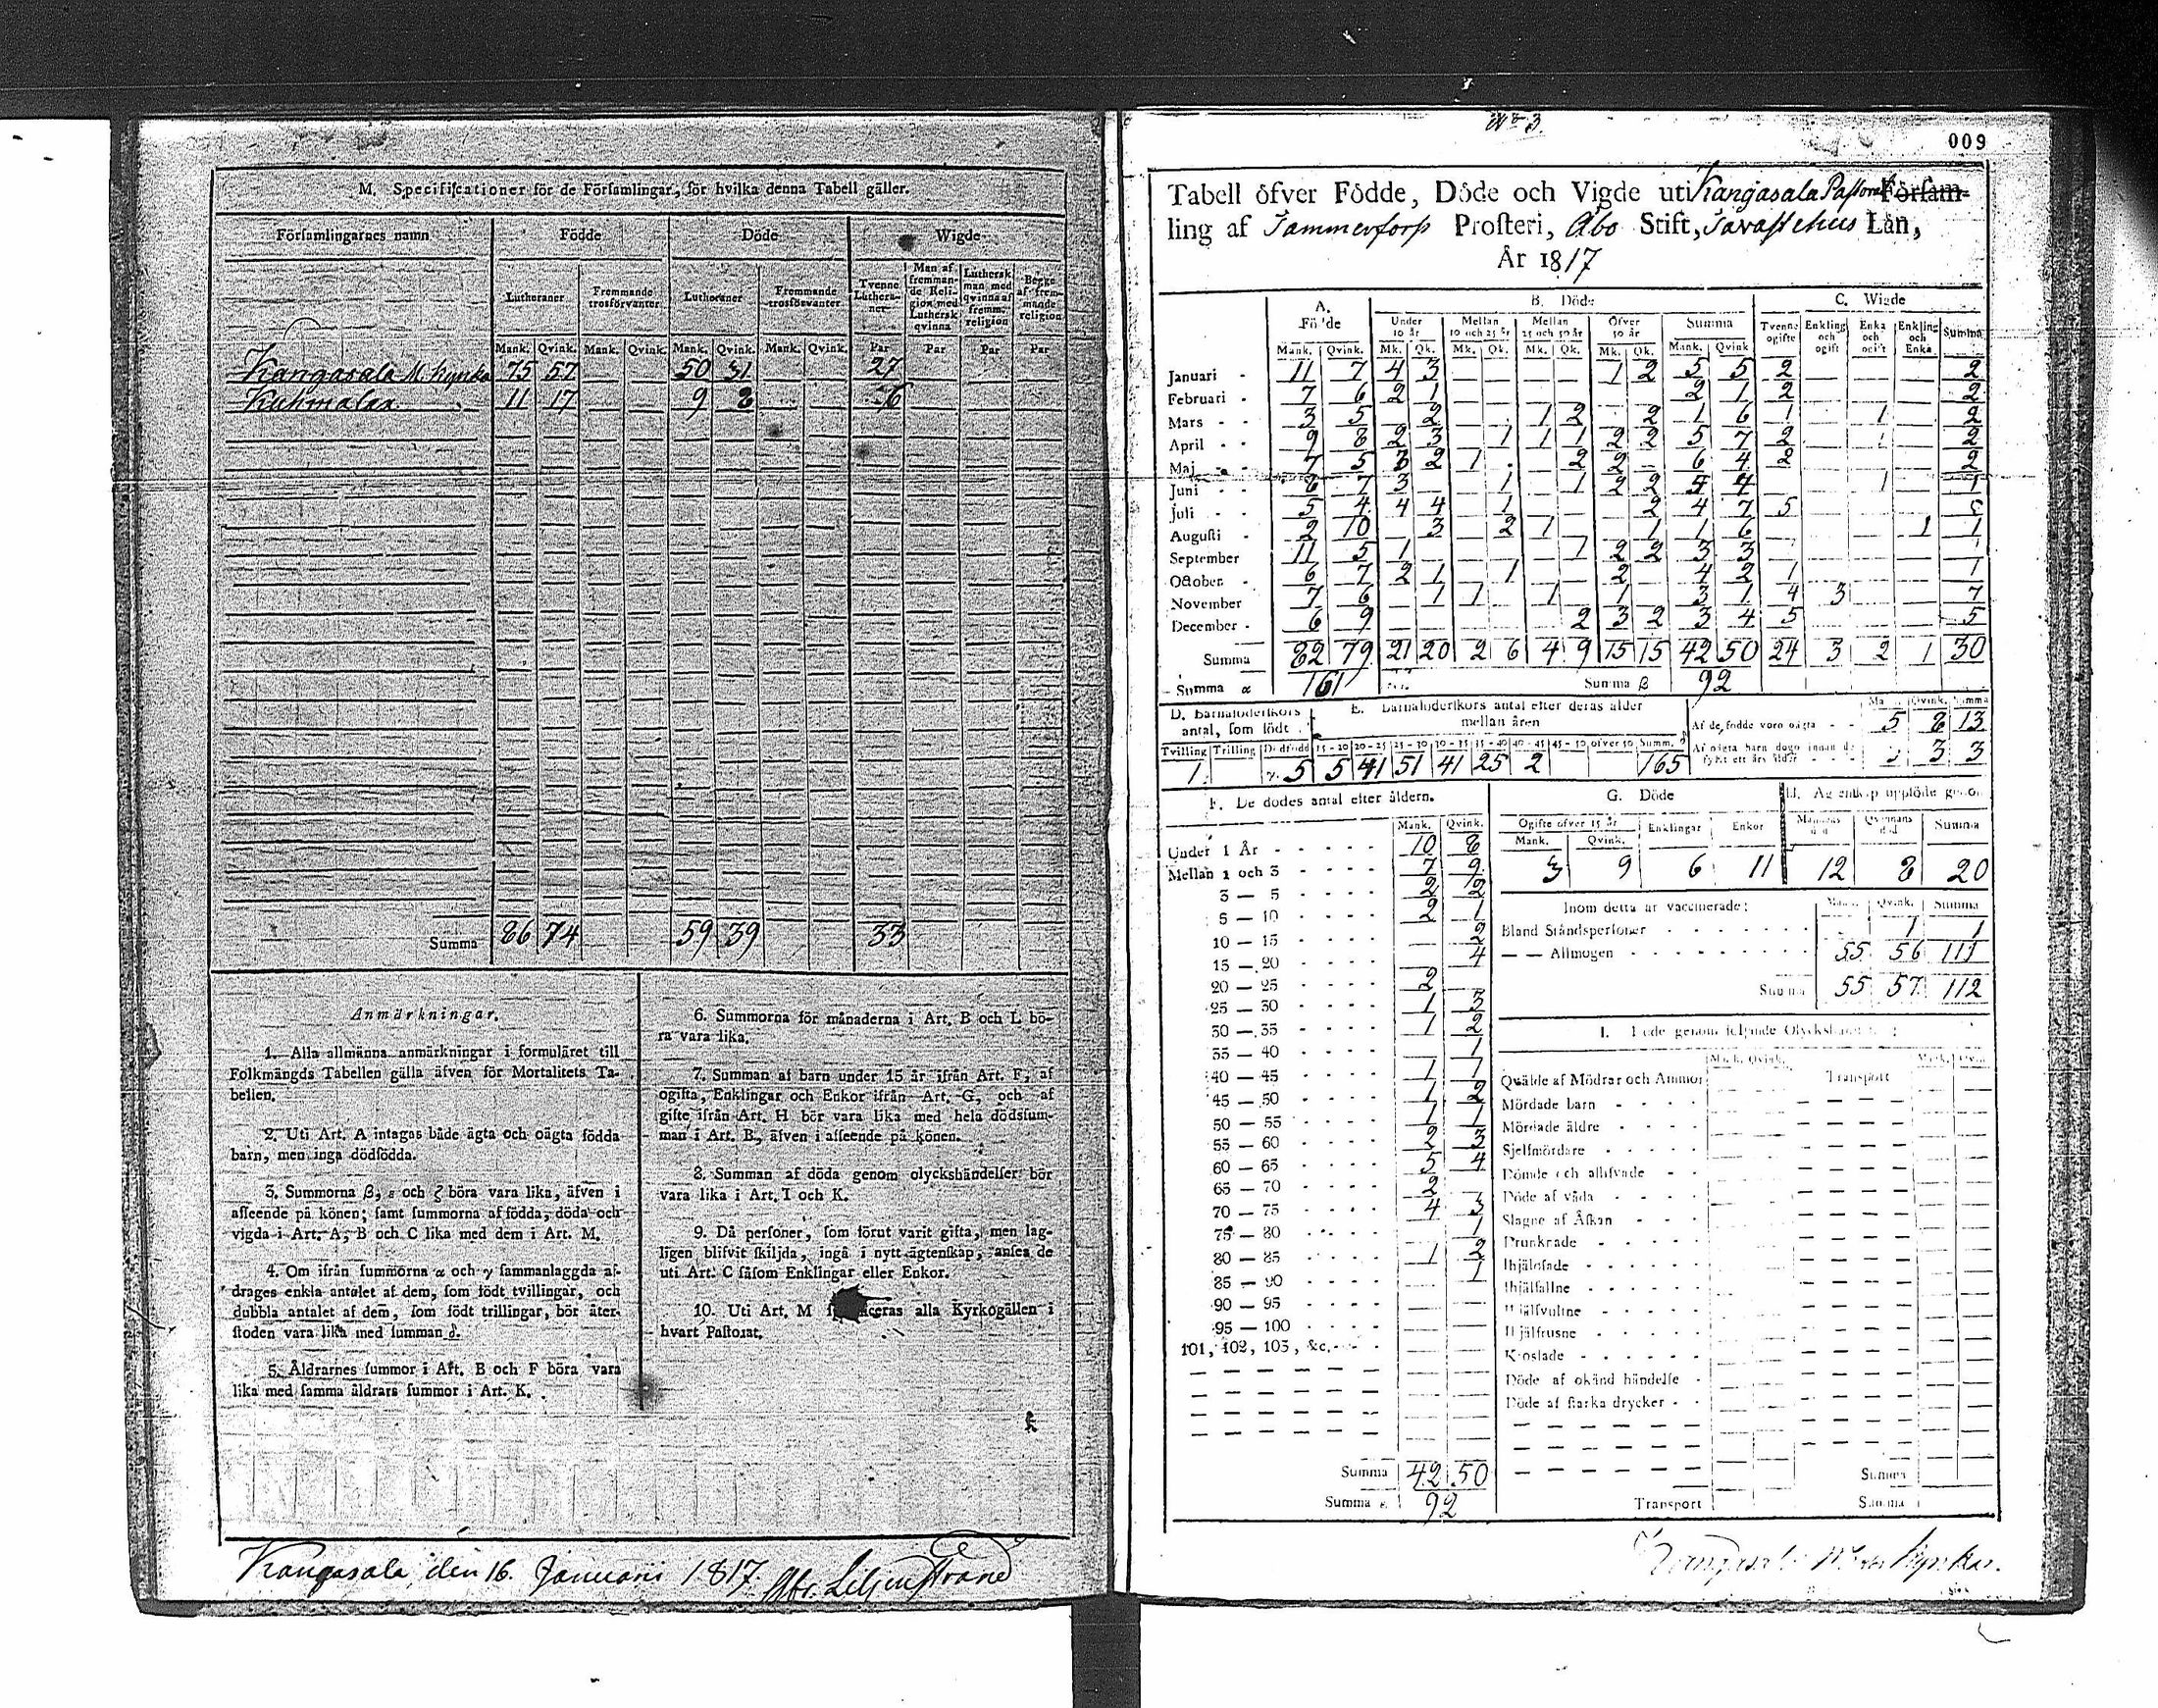 M. Specificationer för de Församlingar, för hvilka denna Tabell gäller.
Församlingarnes namn Födde Döde Wigde
Lutheraner Fremmande trosförvanter Lutheraner Fremmande trosförvanter Tvenne Lutheraner Man af fremmande Religion med Luthersk qvinna Luthersk man med qvinna af fremm. religion Begge af fremmande religion
Mank. Qvink. Mank. Qvink. Mank. Qvink. Mank. Qvink. Par Par Par Par
Kangasala M. Kyrka 75 57 50 31 27
Kuhmalax 11 17 9 8 6
Summa 86 74 59 39 33
Anmärkningar.
1. Alla allmänna anmärkningar i formuläret till
Folkmängds Tabellen gälla äfven för Mortalitets Ta-
bellen.
2. Uti Art. A intagas både ägta och oägta födda
barn, men inga dödfödda.
3. Summorna β, ε och ζ böra vara lika, äfven i
afseende på könen; samt summorna af födda, döda och
vigda i Art. A, B och C lika med dem i Art. M.
4. Om ifrån summorna α och γ sammanlaggda af-
drages enkla antalet af dem, som födt tvillingar, och
dubbla antalet af dem, som födt trillingar, bör åter-
stoden vara lika med summan δ.
5. Åldrarnes summor i Art. B och F böra vara
lika med samma åldrars summor i Art. K.
6. Summorna för månaderna i Art. B och L bö-
ra vara lika.
7. Summan af barn under 15 år ifrån Art. F, af
ogifta, Enklingar och Enkor ifrån Art. G, och af
gifte ifrån Art. H bör vara lika med hela dödssum-
man i Art. B, äfven i afseende på könen.
8. Summan af döda genom olyckshändelser bör
vara lika i Art. I och K.
9. Då personer, som förut varit gifta, men lag-
ligen blifvit skiljda, ingå i nytt ägtenskap, anses de
uti Art. C såsom Enklingar eller Enkor.
10. Uti Art. M alla Kyrkogällen i
hvart Pastorat.
Kangasala den 16. Januari 1817. Abr. Liljenstrand
No 3.
009
Tabell öfver Födde, Döde och Vigde uti Kangasala Pastorat Försam-
ling af Tammerfors Prosteri, Åbo Stift, Tavastehus Län,
År 1817
A. Födde B. Döde C. Wigde
Under 10 år Mellan 10 och 25 år Mellan 25 och 50 år Öfver 50 år Summa Tvenne ogifte Enkling och ogift Enka och ogift Enkling och Enka Summa
Mank. Qvink. Mk. Qk. Mk. Qk. Mk. Qk. Mk. Qk. Mank. Qvink
Januari 11 7 4 3 1 2 5 5 2 2
Februari 7 6 2 1 2 1 2 2
Mars 3 5 2 1 2 2 1 6 1 1 2
April 9 8 2 3 1 1 1 2 2 5 7 2 2
Maj 7 5 3 2 1 2 2 6 4 2 2
Juni 8 7 3 1 1 2 2 5 4 1 1
Juli 5 4 4 4 1 2 4 7 5 5
Augusti 2 10 3 2 1 1 1 6 1 1
September 11 5 1 1 2 2 3 3
October 6 7 2 1 1 2 4 2 1 1
November 7 6 1 1 1 1 3 1 4 3 7
December 6 9 2 3 2 3 4 5 5
Summa 82 79 21 20 2 6 4 9 15 15 42 50 24 3 2 1 30
Summa α 161 Summa β 92
D. Barnaföderskors antal, som födt
Tvilling Trilling Dödfödd
1. γ. 5
E. Barnaföderskors antal efter deras ålder mellan åren
15-20 20-25 25-30 30-35 35-40 40-45 45-50 öfver 50 Summ. δ
5 41 51 41 25 2 165
Qvink. Summa
Af de födde voro oägta 5 8 13
Af oägta barn dogo innan de fyllt ett års ålder 3 3
F. De dödes antal efter åldern.
Mank. Qvink.
Under 1 År 10 8
Mellan 1 och 3 7 9
3 — 5 2 2
5 — 10 2 1
10 — 15 2
15 — 20 4
20 — 25 2
25 — 30 1 3
30 — 35 1 2
35 — 40 1
40 — 45 1 1
45 — 50 1 2
50 — 55 1 1
55 — 60 2 3
60 — 65 5 4
65 — 70 2
70 — 75 4 3
75 — 80 1
80 — 85 1 2
85 — 90 1
90 — 95
95 — 100
101, 102, 103, &c.
Summa 42 50
Summa ε 92
G. Döde
Ogifte öfver 15 år Enklingar Enkor
Mank. Qvink.
3 9 6 11
H. Ägtenskap upplöste genom
Mannens död Qvinnans död Summa
12 8 20
Inom detta år vaccinerade: Mank. Qvink. Summa
Bland Ståndspersoner 1 1
— — Allmogen 55 56 111
Summa 55 57 112
I. Döde genom följande Olyckshändelser:
Mank. Qvink.
Qvälde af Mödrar och Ammor Transport
Mördade barn
Mördade äldre
Sjelfmördare
Dömde och aflifvade
Döde af våda
Slagne af Åskan
Drunknade
Ihjälosade
Ihjälfallne
Ihjälfrusne
Döde af okänd händelse
Döde af starka drycker
Summa
Transport Summa